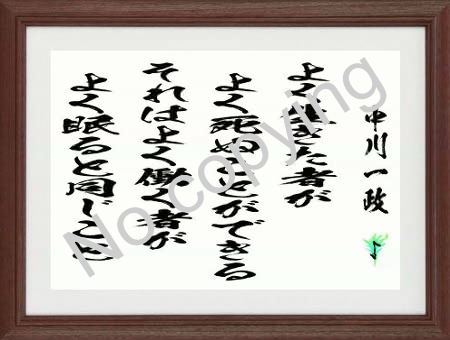 中川一政
よく生きた者が
よく死ぬことができる
それはよく働く者が
よく眠ると同じこと
No copying